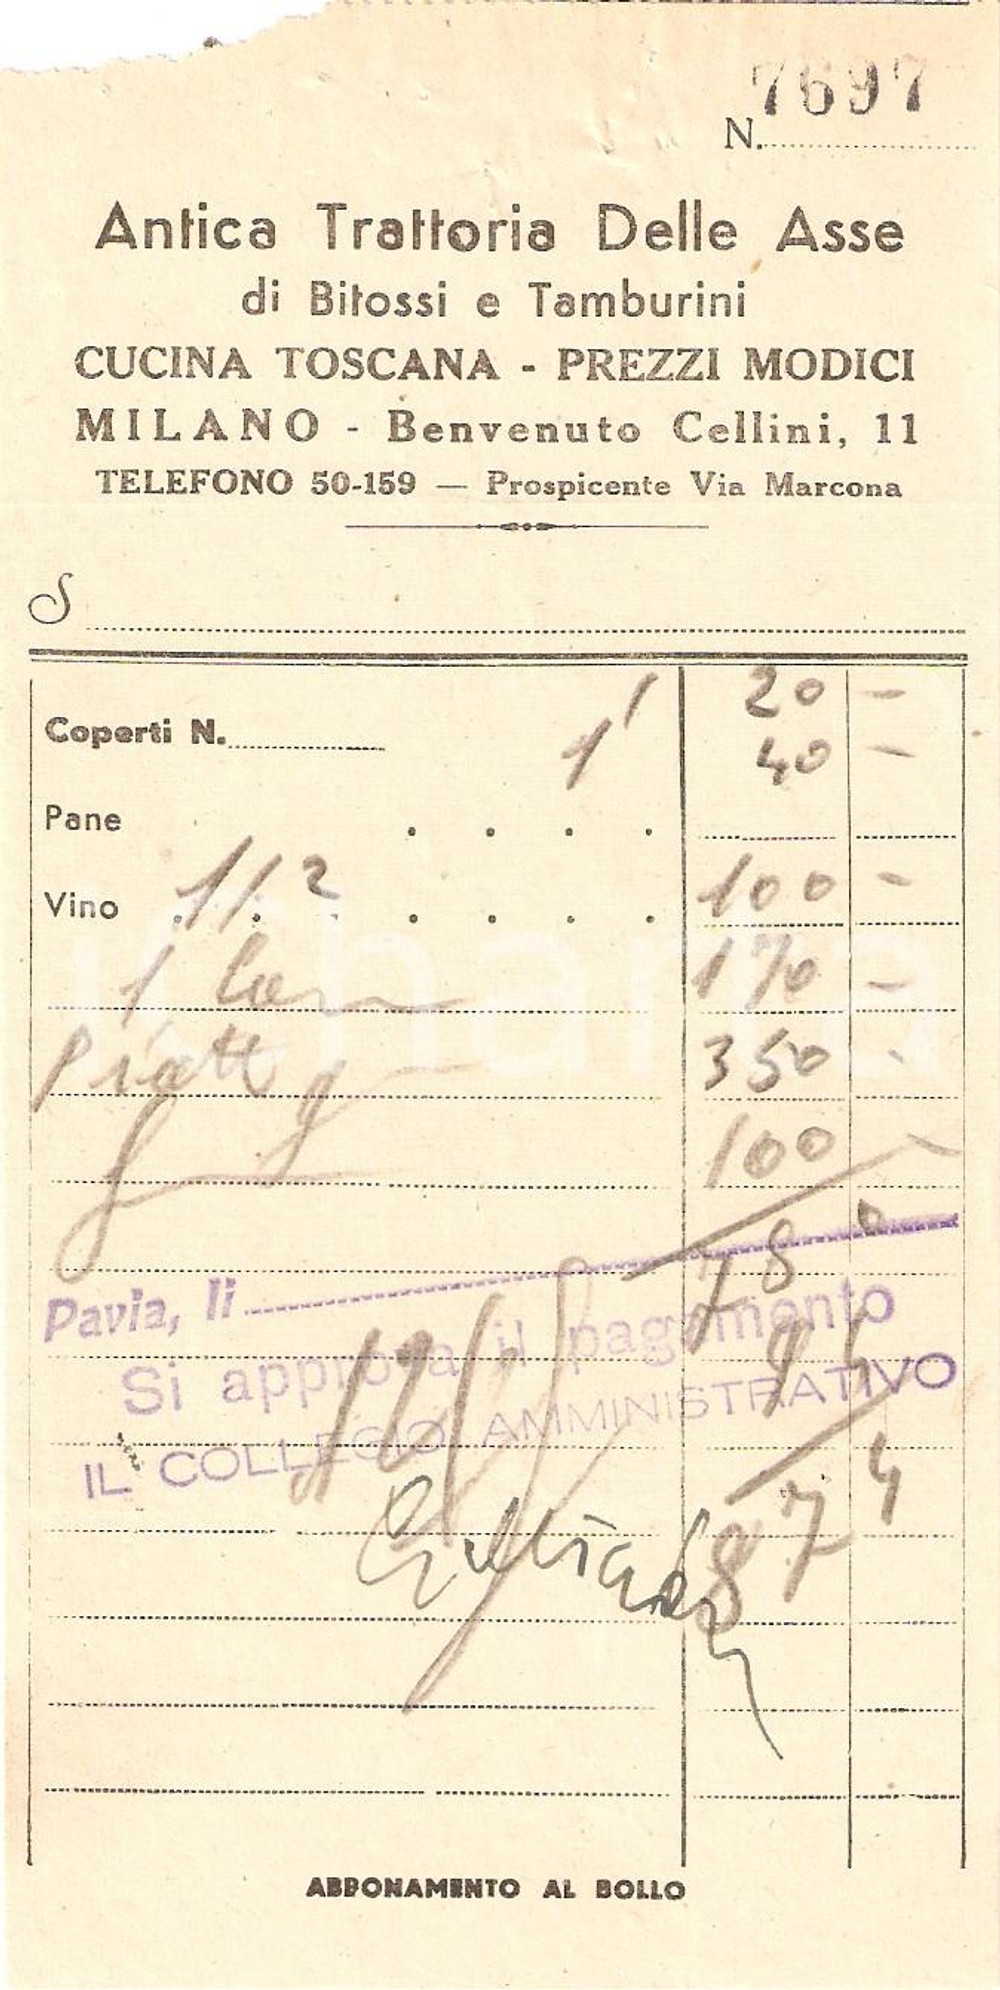 7697
N.
Antica Trattoria Delle Asse
di Bitossi e Tamburini
CUCINA TOSCANA - PREZZI MODICI
MILANO - Benvenuto Cellini, 11
TELEFONO 50-159 — Prospicente Via Marcona
S
1 20 -
Coperti N. 1 40 -
Pane
Vino 1/2 100 -
1 170 -
Piatt 350 -
100
780
Pavia, li
Si approva il pagamento
94
IL COLLEGIO AMMINISTRATIVO
874
ABBONAMENTO AL BOLLO